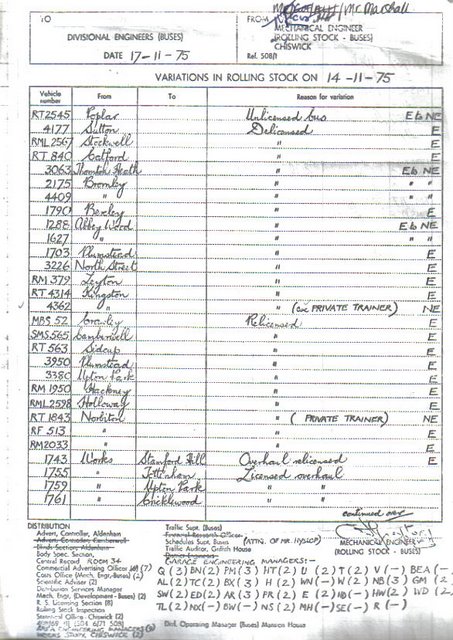 TO
DIVISIONAL ENGINEERS (BUSES)
DATE 17-11-75
Mr Marshall
FROM
MECHANICAL ENGINEER
(ROLLING STOCK - BUSES)
CHISWICK
Ref. 508/1
VARIATIONS IN ROLLING STOCK ON 14-11-75
Vehicle number From To Reason for variation
RT2545 Poplar Unlicensed bus Eb NE
4177 Sutton Delicensed E
RML2567 Stockwell " E
RT 840 Catford " E
3063 Thornton Heath " Eb NE
2175 Bromley " " "
4409 " " " "
1790 Bexley " E
1288 Abbey Wood " Eb NE
1627 " " " "
1703 Plumstead " E
3226 North Street " E
RM 379 Leyton " E
RT 4314 Kingston " E
4362 " " (ex PRIVATE TRAINER) NE
MBS 52 Bromley Relicensed E
SMS 565 Camberwell " E
RT 563 Sidcup " E
3950 Plumstead " E
3380 Upton Park " E
RM 1950 Hackney " E
RML 2598 Holloway " E
RT 1843 Norbiton " (PRIVATE TRAINER) NE
RF 513 " " E
RM2033 " " E
1743 Works Stamford Hill Overhaul relicensed E
1755 " Tottenham Licensed overhaul
1759 " Upton Park " "
1761 " Cricklewood " "
continued over
MECHANICAL ENGINEER
(ROLLING STOCK - BUSES)
DISTRIBUTION
Advert. Controller, Aldenham
Body Supt. Section,
Central Record ROOM 34
Commercial Advertising Officer
Costs Office (Mech. Engr. Buses) (2)
Scientific Adviser (2)
Distribution Services Manager
Mech. Engr. (Development - Buses) (2)
R. S. Licensing Section (8)
Rolling Stock Inspectors
Statistical Office - Chiswick (2)
WORKS STORE, CHISWICK (2)
Traffic Supt. (Buses)
Financial Research Officer
Schedules Supt. Buses (ATTN. OF MR HYSLOP)
Traffic Auditor, Griffith House
GARAGE ENGINEERING MANAGERS:-
Q (3) BN (2) PM (3) HT (2) U (2) T (2) V (-) BEA (-)
AL (2) TC (2) BX (3) H (2) WN (-) W (2) NB (3) GM (2)
SW (2) ED (2) AR (3) PR (2) E (2) ND (-) HW (2) WD (2)
TL (2) NX (-) BW (-) NS (2) MH (-) SE (-) R (-)
Divl. Operating Manager (Buses) Mansion House